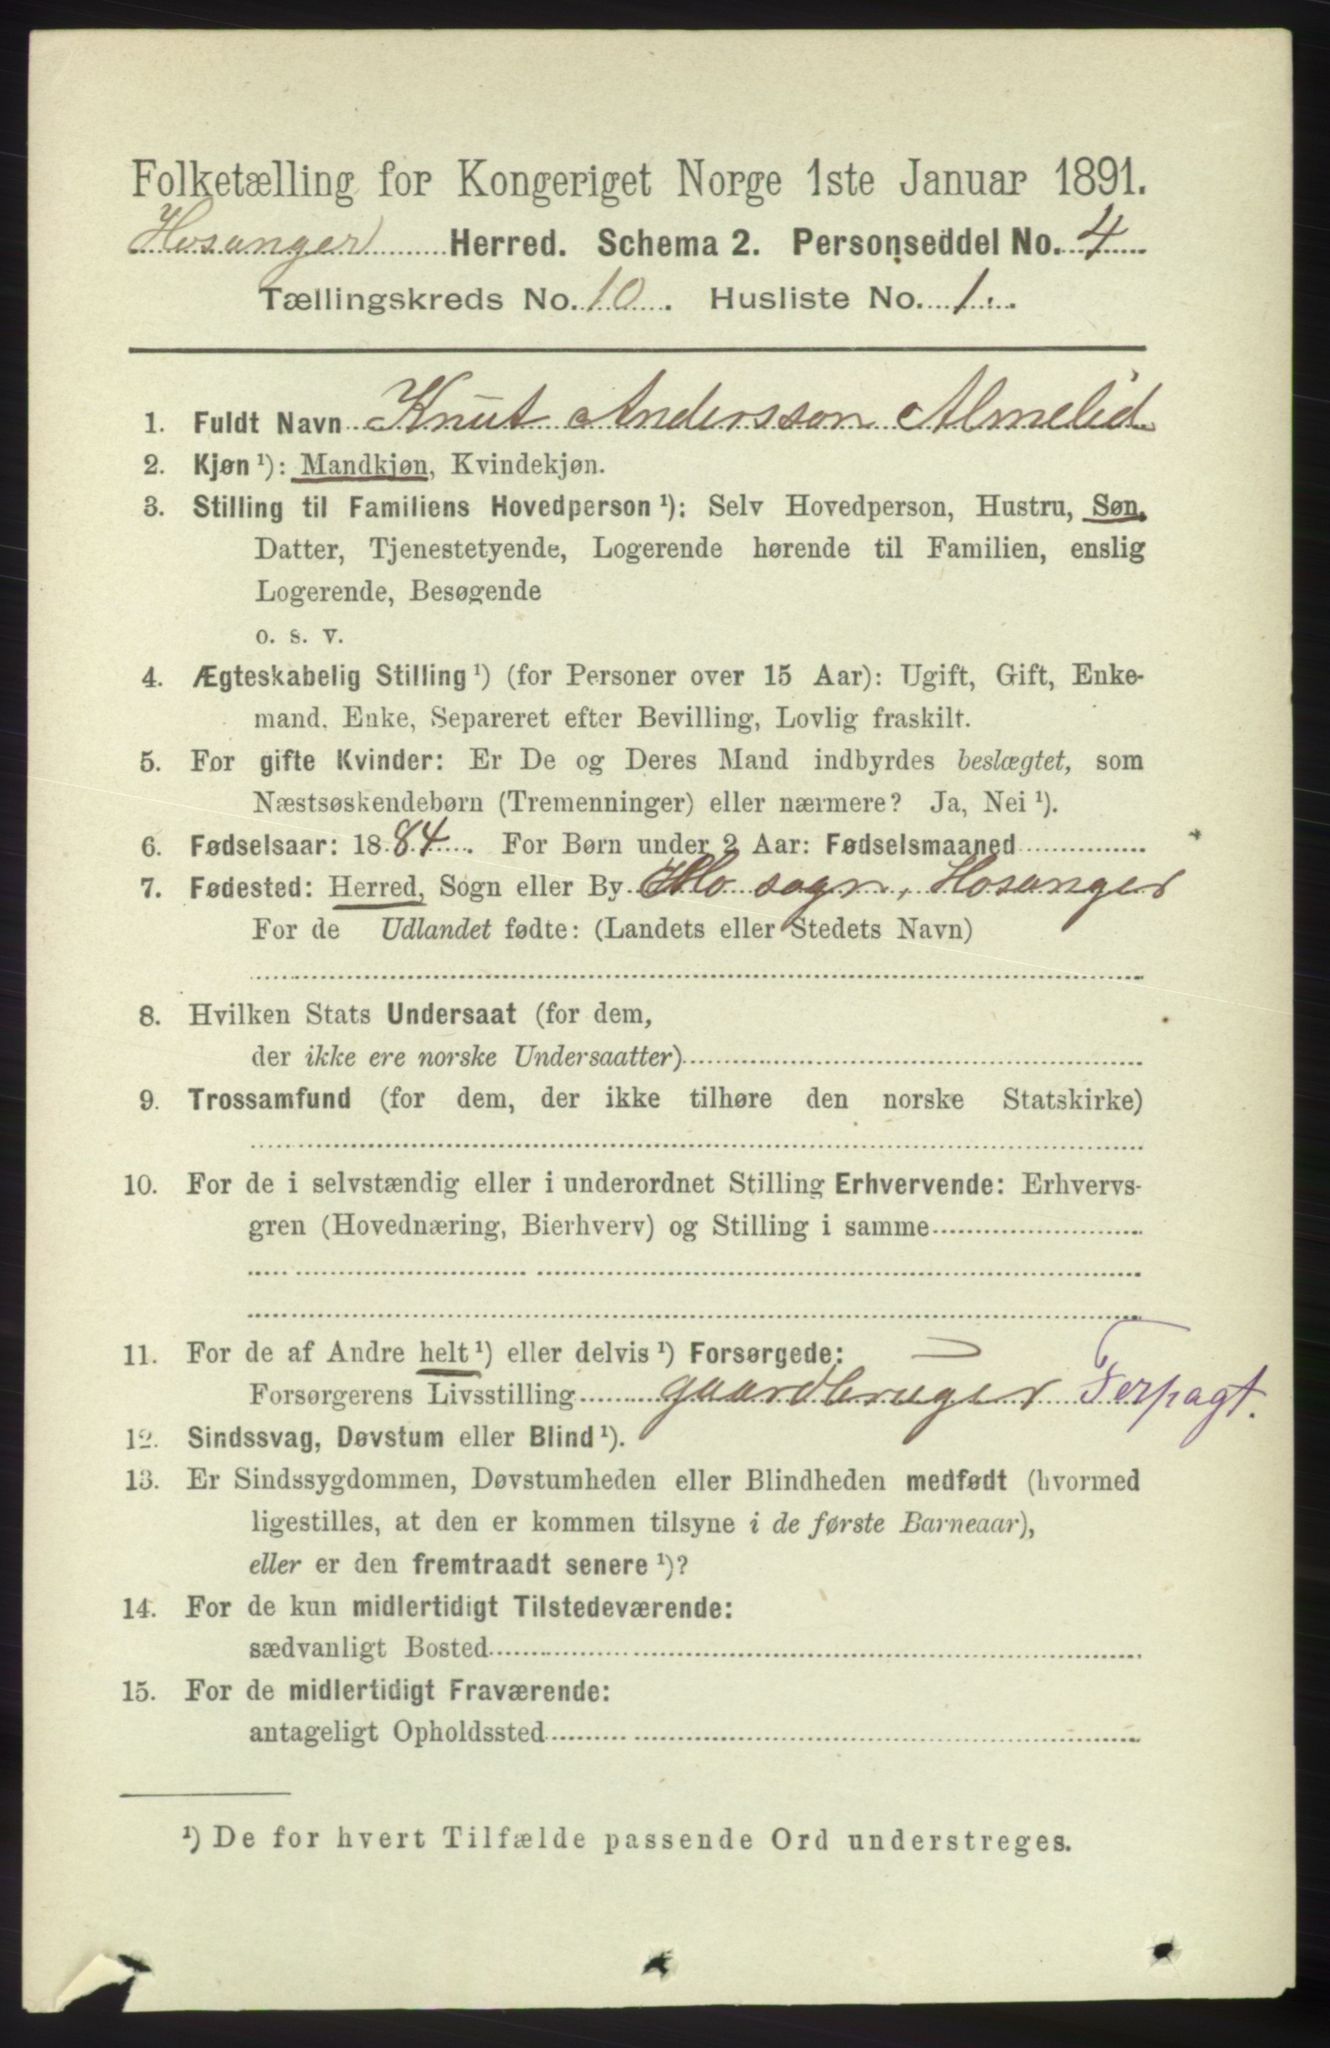 Folketælling for Kongeriget Norge 1ste Januar 1891.
Hosanger Herred. Schema 2. Personseddel No. 4
Tællingskreds No. 10. Husliste No. 1.
1. Fuldt Navn Knut Andersson Almelid
2. Kjøn ¹): Mandkjøn, Kvindekjøn.
3. Stilling til Familiens Hovedperson ¹): Selv Hovedperson, Hustru, Søn,
Datter, Tjenestetyende, Logerende hørende til Familien, enslig
Logerende, Besøgende
o. s. v.
4. Ægteskabelig Stilling ¹) (for Personer over 15 Aar): Ugift, Gift, Enke-
mand, Enke, Separeret efter Bevilling, Lovlig fraskilt.
5. For gifte Kvinder: Er De og Deres Mand indbyrdes beslægtet, som
Næstsøskendebørn (Tremenninger) eller nærmere? Ja, Nei ¹).
6. Fødselsaar: 1884. For Børn under 2 Aar: Fødselsmaaned
7. Fødested: Herred, Sogn eller By sogn, Hosanger
For de Udlandet fødte: (Landets eller Stedets Navn)
8. Hvilken Stats Undersaat (for dem,
der ikke ere norske Undersaatter)
9. Trossamfund (for dem, der ikke tilhøre den norske Statskirke)
10. For de i selvstændig eller i underordnet Stilling Erhvervende: Erhvervs-
gren (Hovednæring, Bierhverv) og Stilling i samme
11. For de af Andre helt ¹) eller delvis ¹) Forsørgede:
Forsørgerens Livsstilling gaardbruger
12. Sindssvag, Døvstum eller Blind ¹).
13. Er Sindssygdommen, Døvstumheden eller Blindheden medfødt (hvormed
ligestilles, at den er kommen tilsyne i de første Barneaar),
eller er den fremtraadt senere ¹)?
14. For de kun midlertidigt Tilstedeværende:
sædvanligt Bosted
15. For de midlertidigt Fraværende:
antageligt Opholdssted
¹) De for hvert Tilfælde passende Ord understreges.